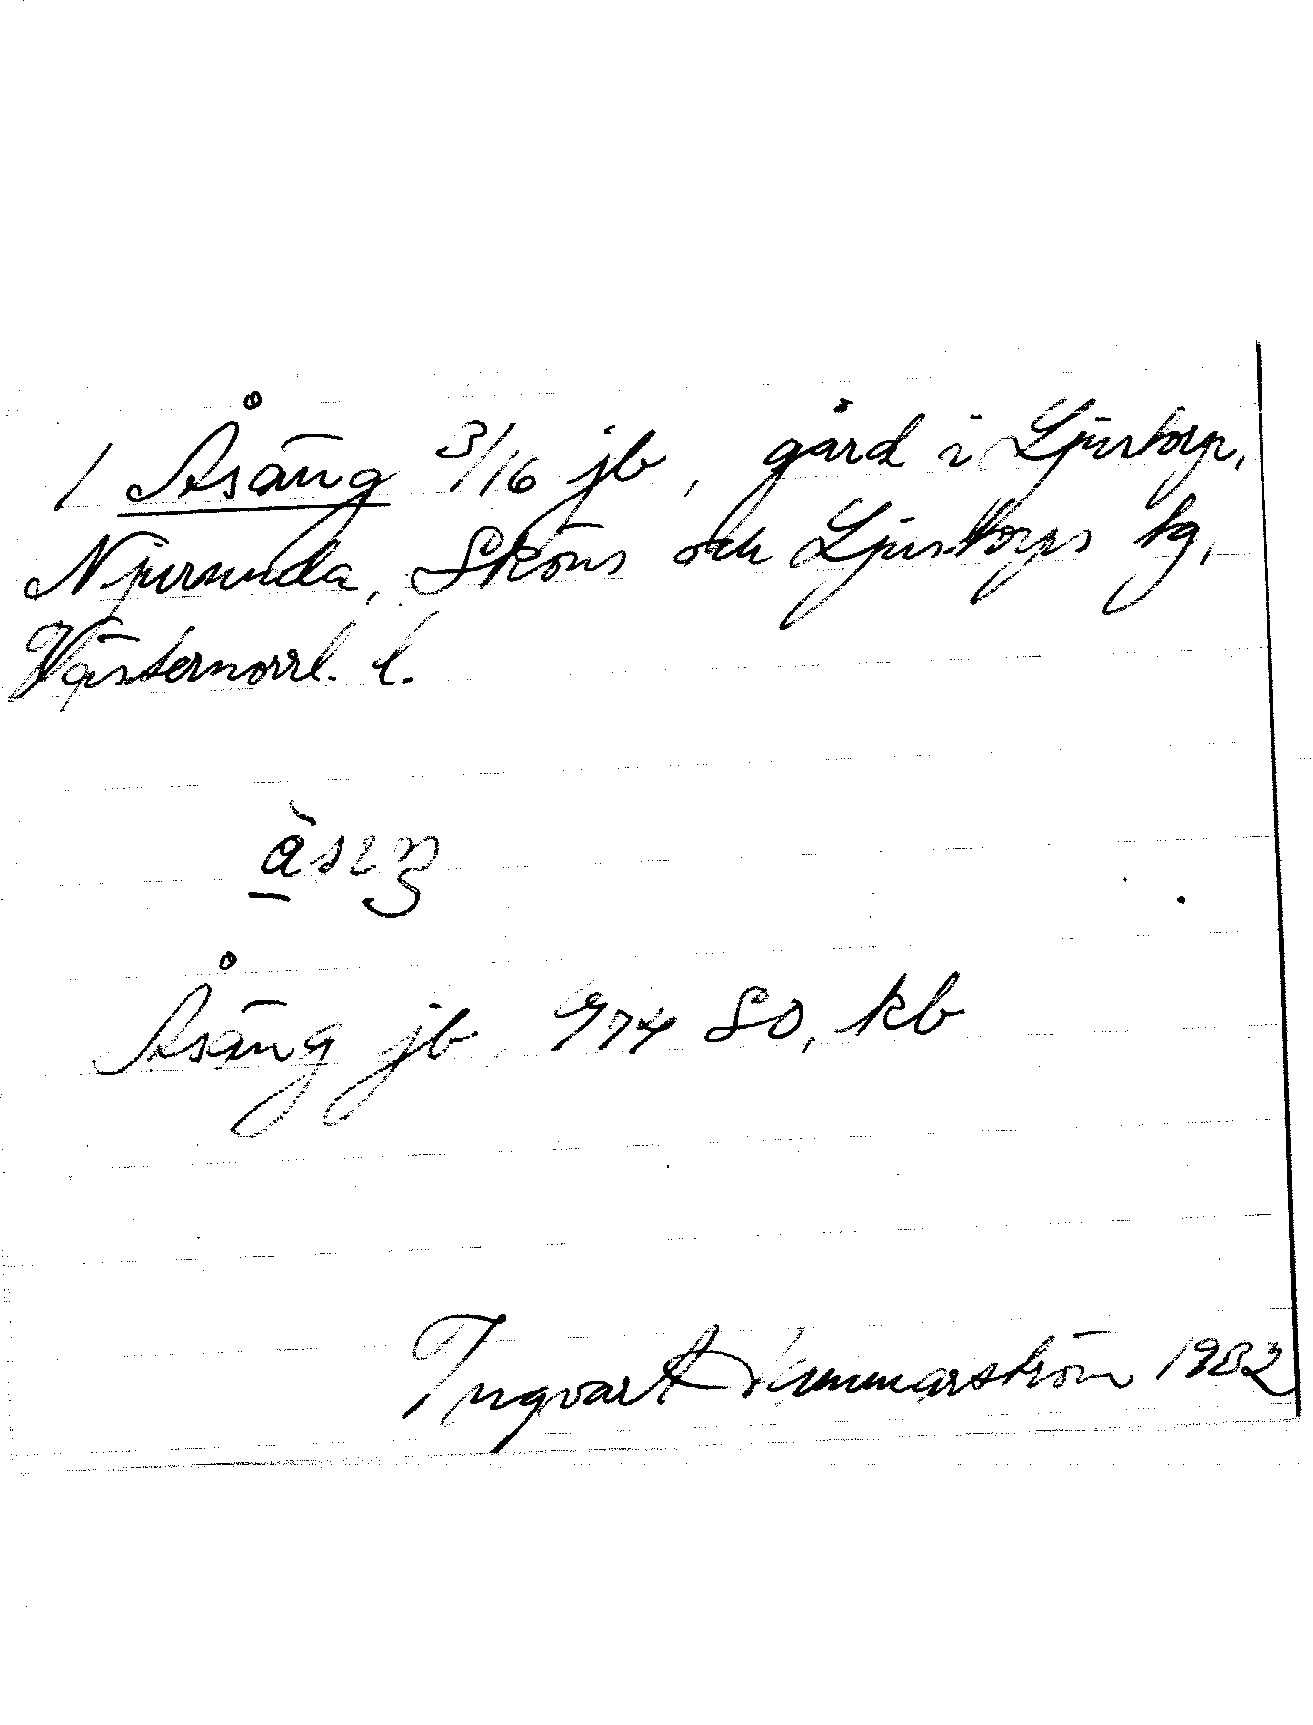 1 Åsäng 3/16 jb, gård i Ljustorp,
Njurunda, Sköns och Ljustorps tg,
Västernorrl. l.
Åsäng jb 974 SO, kb
Ingvar Hammarström 1932